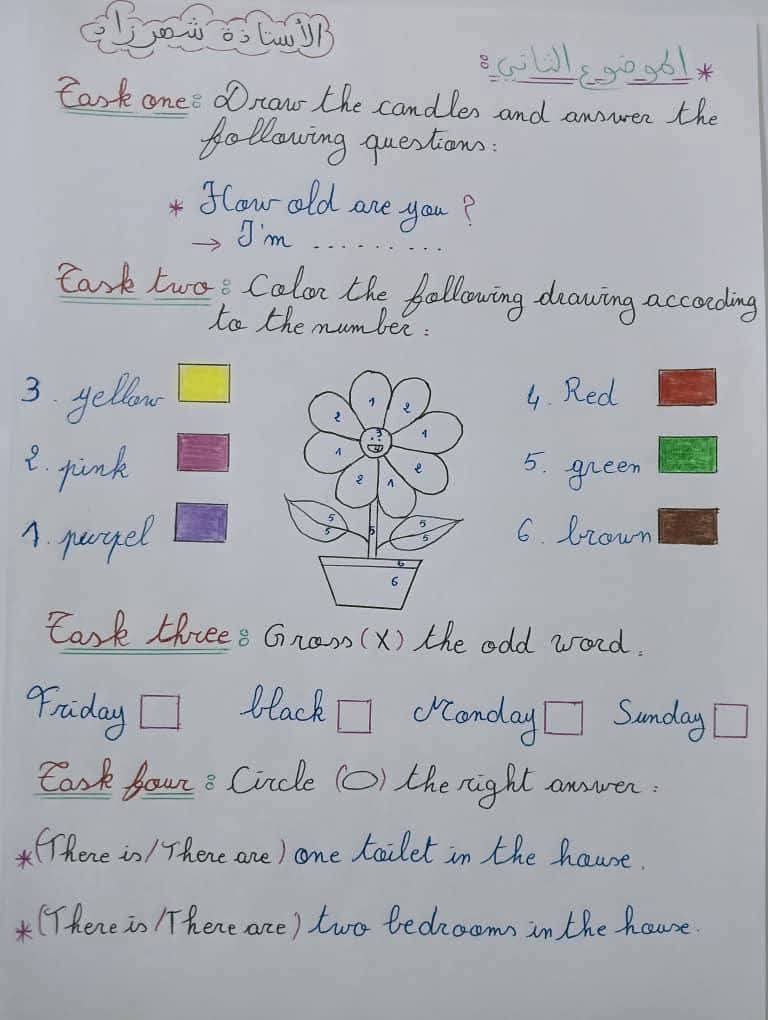 الأستاذة شهرزاد
* الموضوع الثاني:
Task one: Draw the candles and answer the
following questions:
* How old are you?
→ I'm .........
Task two: Color the following drawing according
to the number:
3. yellow
2. pink
1. purpel
1
2
2
1
3
1
2
2
1
5
5
5
5
5
6
6
4. Red
5. green
6. brown
Task three: Gross (X) the odd word.
Friday black Monday Sunday
Task four: Circle (O) the right answer:
*(There is/There are) one toilet in the house.
*(There is/There are) two bedrooms in the house.